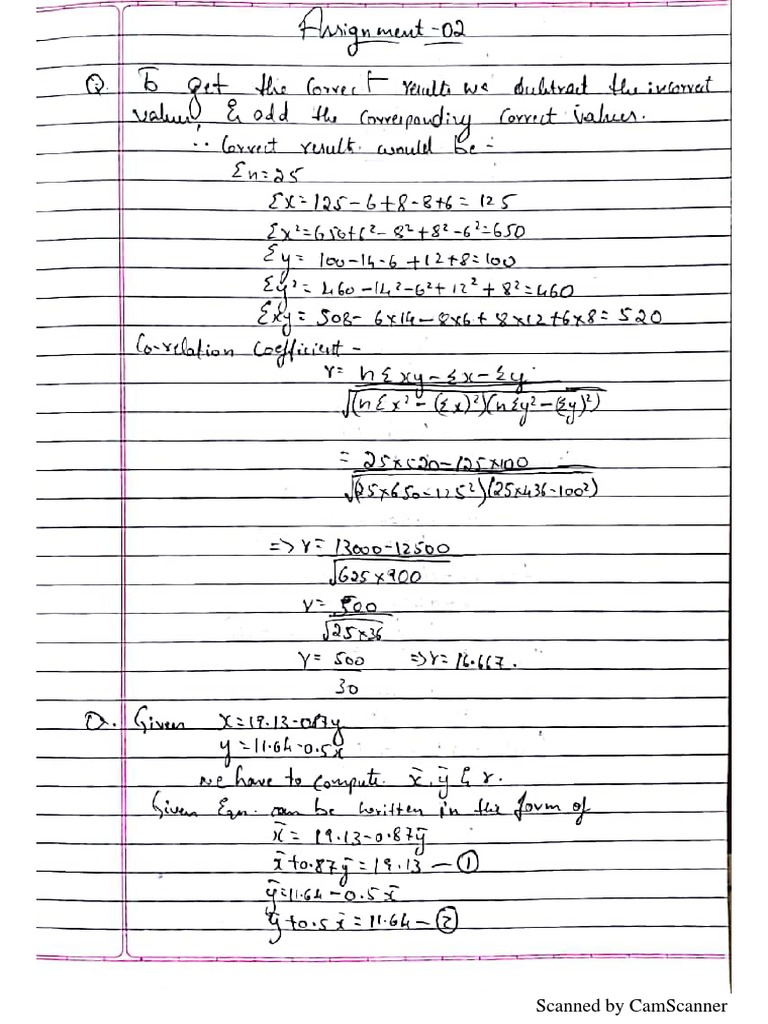 Assignment-02
Q. To get the correct results we subtract the incorrect
values & add the corresponding correct values.
∴ Correct result would be -
Σn=25
Σx=125-6+8-8+6=125
Σx²=650+6²-8²+8²-6²=650
Σy= 100-14-6+12+8=100
Σy²= 460-14²-6²+12²+8²=460
Σxy= 508- 6×14-8×6+8×12+6×8= 520
Co-relation Coefficient -
r= nΣxy-Σx-Σy
√(nΣx²-(Σx)²)(nΣy²-(Σy)²)
= 25×520-125×100
√(25×650-125²)(25×436-100²)
=> r= 13000-12500
√625×900
r= 500
√25×36
r= 500 =>r=16.667.
30
Q. Given x=19.13-0.87y
y=11.64-0.5x
we have to compute x̄, ȳ & r.
Given Eqn. can be written in the form of
x̄= 19.13-0.87ȳ
x̄+0.87ȳ=19.13 — ①
ȳ=11.64-0.5x̄
ȳ+0.5x̄=11.64 — ②
Scanned by CamScanner